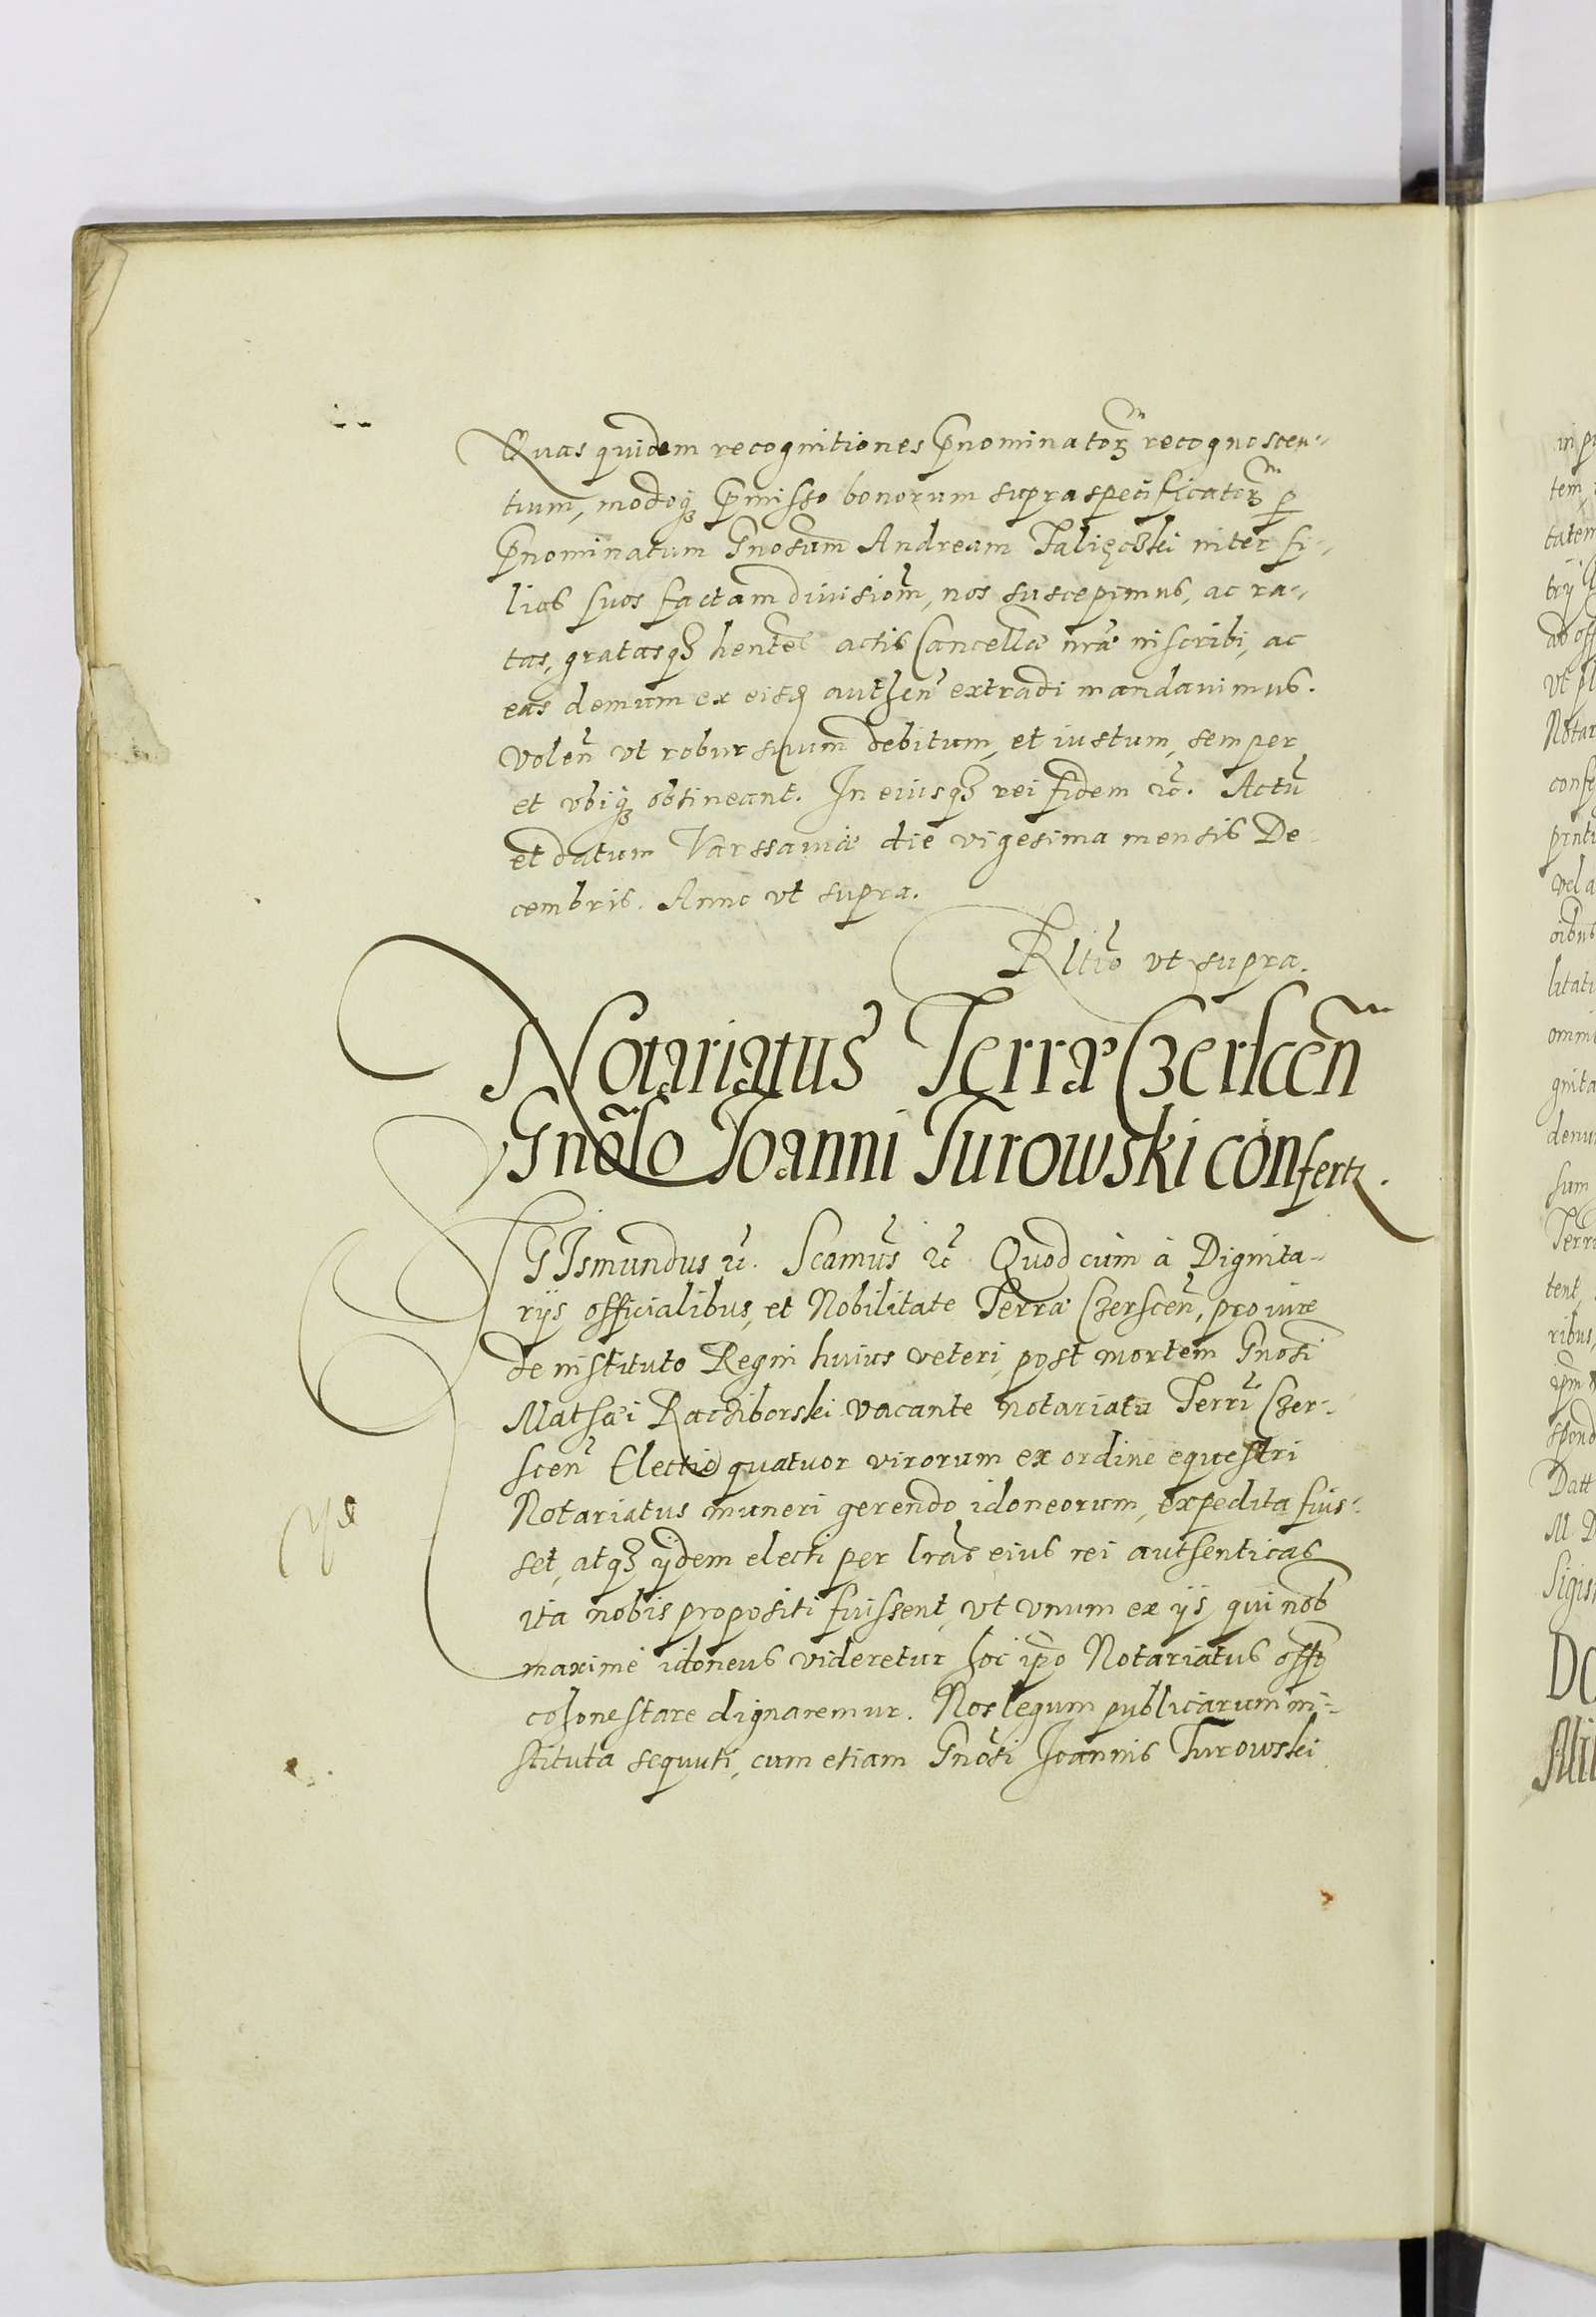 Quas quidem recognitiones Pnominatorꝫ recognoscen-
tium, modoqꝫ Pmisso bonorum supra specificatorꝫ ꝑ
Pnominatum Gnosum Andream inter fi-
lios suos factam diuisiom̄, nos suscepimus, ac ra-
tas, gratasqꝫ hentes actis Cancellæ nræ inscribi, ac
eas demum ex eisd authen̄ extradi mandauimus.
volen̄ vt robur suum debitum, et iustum, semper
et vbiqꝫ obtineant. In eiusqꝫ rei fidem ꝛc̄. Actū
et datum Varssauiæ die vigesima mensis De-
cembris. Anno vt supra.
Rltio vt supra.
Notariatus Terræ Czerscen̄
Gnōso Joanni Turowski confertꝛ.
SGJsmundus ꝛc̄. Scamūs ꝛc̄ Quod cùm à Dignita-
rijs officialibus, et Nobilitate Terræ Czerscen̄, pro iure
de instituto Regni huius veteri, post mortem Gnosi
Matthæi Raciborski vacante notariatu Terræ Czer-
scen̄ Electio quatuor virorum ex ordine equestri
Notariatus muneri gerendo idoneorum, expedita fuis-
set, atqꝫ ijdem electi per lras eius rei authenticas
ita nobis propositi fuissent, vt vnum ex ijs, qui nob
maximè idoneus videretur hoc ipo Notariatus offō
cohonestare dignaremur. Nos legum publicarum in-
stituta sequuti, cum etiam Gnōsi Joannis Turowski